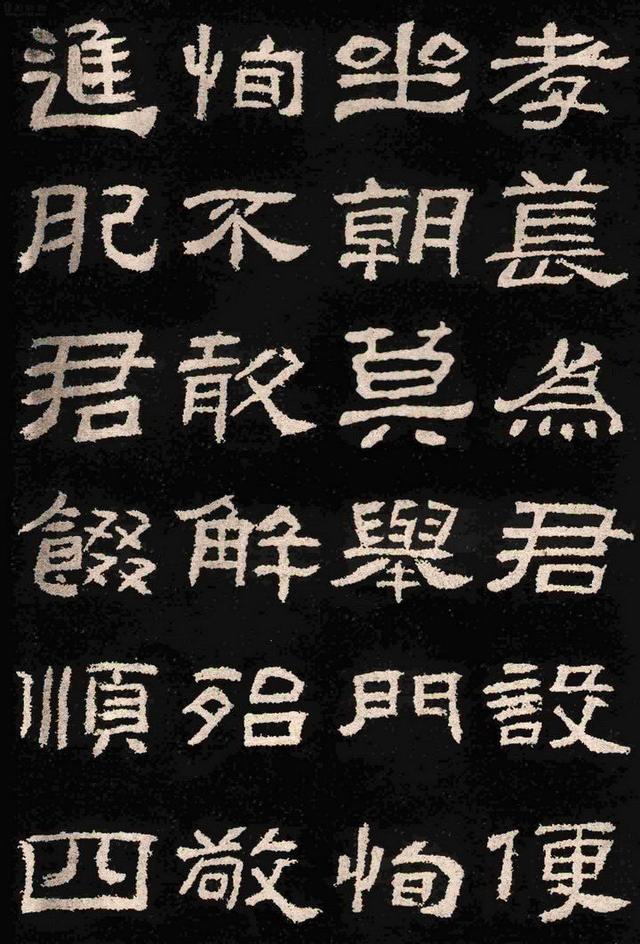 孝萇為君設便
坐朝莫舉門恂
恂不敢解殆敬
進肥君餟順四